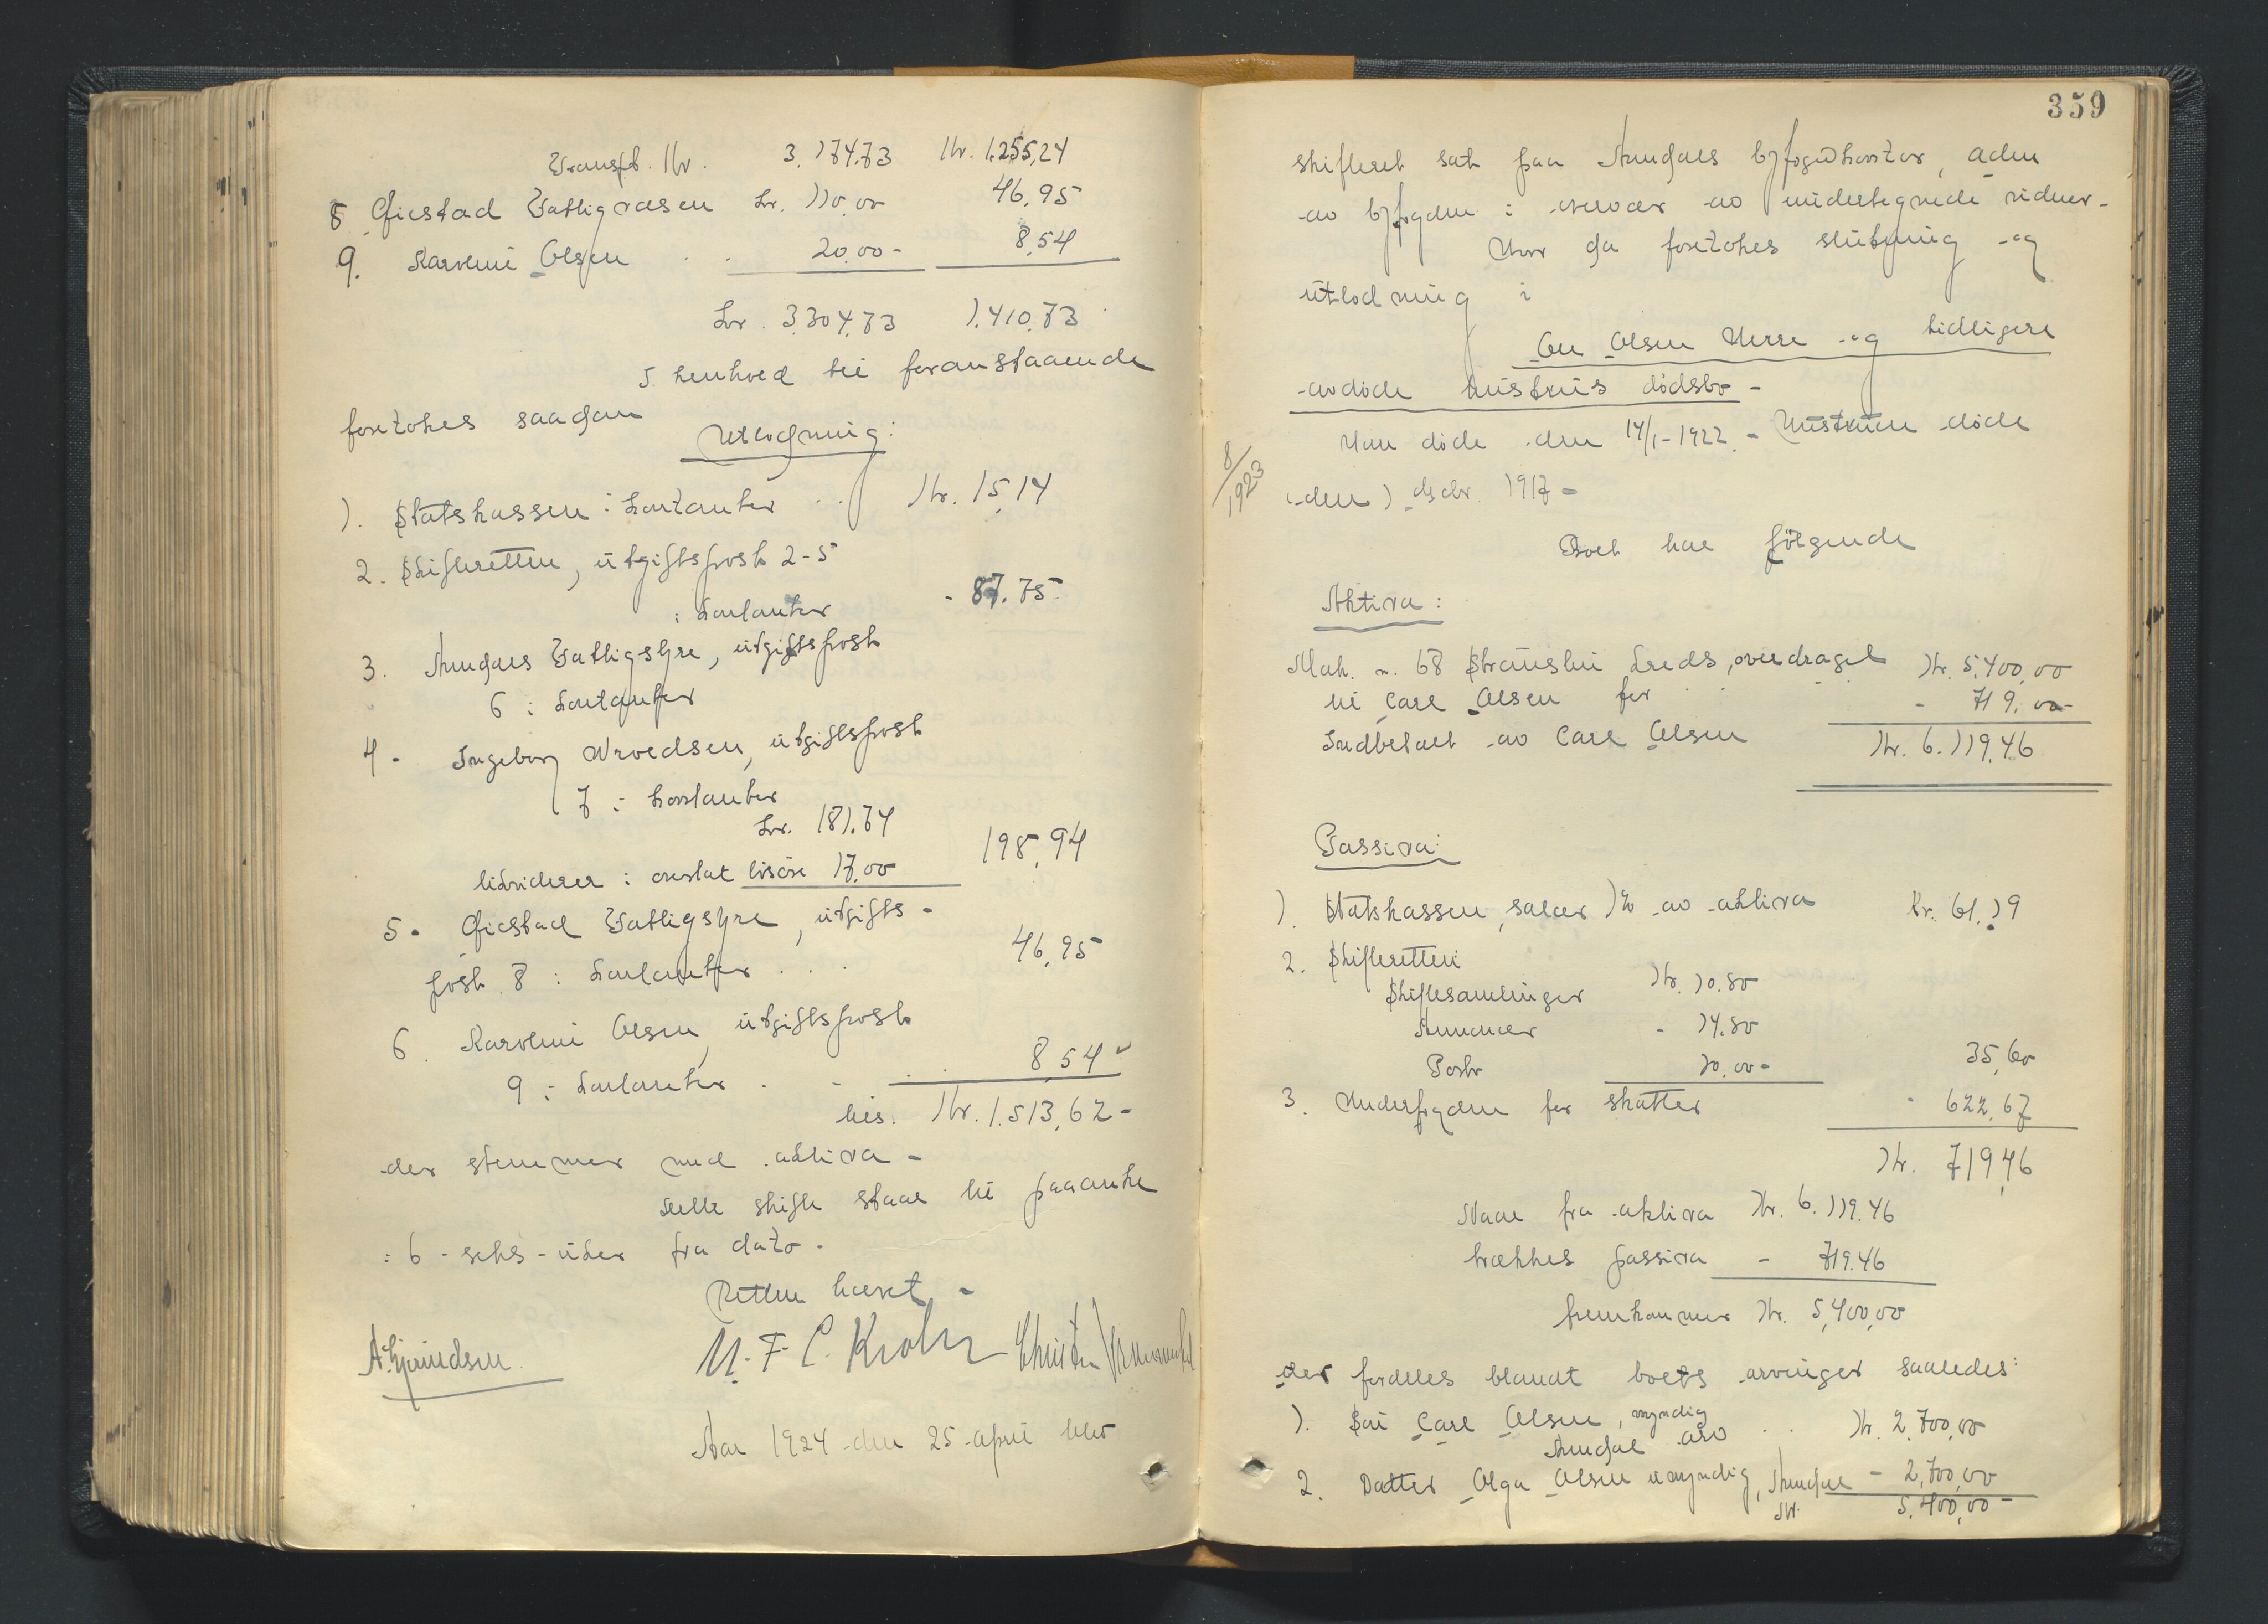 Transpt. Kr. 3.174,73 Kr. 1.255,24
8. Øiestad Fattigvæsen Kr. 110,00 46,95
9. Karoline Olsen . . 20,00 - 8,54
Kr. 3.304,73 1.410,73
I henhold til foranstaaende
foretokes saadan
Utlodning:
1. Statskassen i kontanter . . Kr. 15,14
2. Skifteretten, utgiftspost 2-5
i kontanter - 87.75
3. Arendals Fattigstyre, utgiftspost
6 i kontanter
4. Ingeborg utgiftspost
7 i kontanter
Kr. 181.74
likviderer i løsøre 17.00 198,94
5. Øiestad Fattigstyre, utgifts-
post 8 i kontanter . . . 46,95
6. Karoline Olsen, utgiftspost
9 i kontanter . - . . 8,54
tils. Kr. 1.513,62 -
der stemmer med aktiva -
Dette skifte staar til paaanke
i 6 - seks - uker fra dato -
Retten hævet -
N. F. C. Krohn
Aar 1924 den 25 april blev
359
skifteret sat paa Arendals byfogedkontor, adm
av byfogden i nærvær av undertegnede vidner -
Hvor da foretokes slutning og
utlodning i
Ole Olsen Herre og tidligere
avdøde hustrus dødsbo -
Han døde den 14/1 - 1922 - Hustruen døde
8/1923
den 1 decbr. 1917 -
Boet har følgende
Aktiva:
Mat. n. 68 Strømsbu kreds, overdraget Kr. 5.400,00
til Carl Olsen for . . - 719,00 -
Indbetalt av Carl Olsen Kr. 6.119.46
Passiva:
1. Statskassen, salær 1% av aktiva Kr. 61.19
2. Skifteretten
Skiftesamlinger Kr. 10.80
- 14.80
Porto 10.00 - 35,60
3. Underfogden for skatter - 622,67
Kr. 719,46
Naar fra aktiva Kr. 6.119.46
trækkes passiva - 719.46
fremkommer Kr. 5,400,00
der fordeles blandt boets arvinger saaledes:
1. Søn Carl Olsen, myndig . . Kr. 2.700,00
Arendal arv
2. Datter Olga Olsen umyndig, Arendal - 2,700,00
Kr. 5.400,00 -